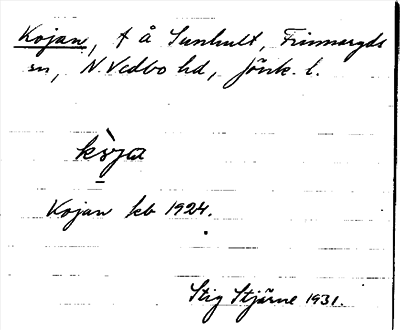 Kojan, t å Sunhult, Finnaryds
sn, N Vedbo hd, Jönk. l.
kòja
Kojan kb 1924.
Stig Stjärne 1931.